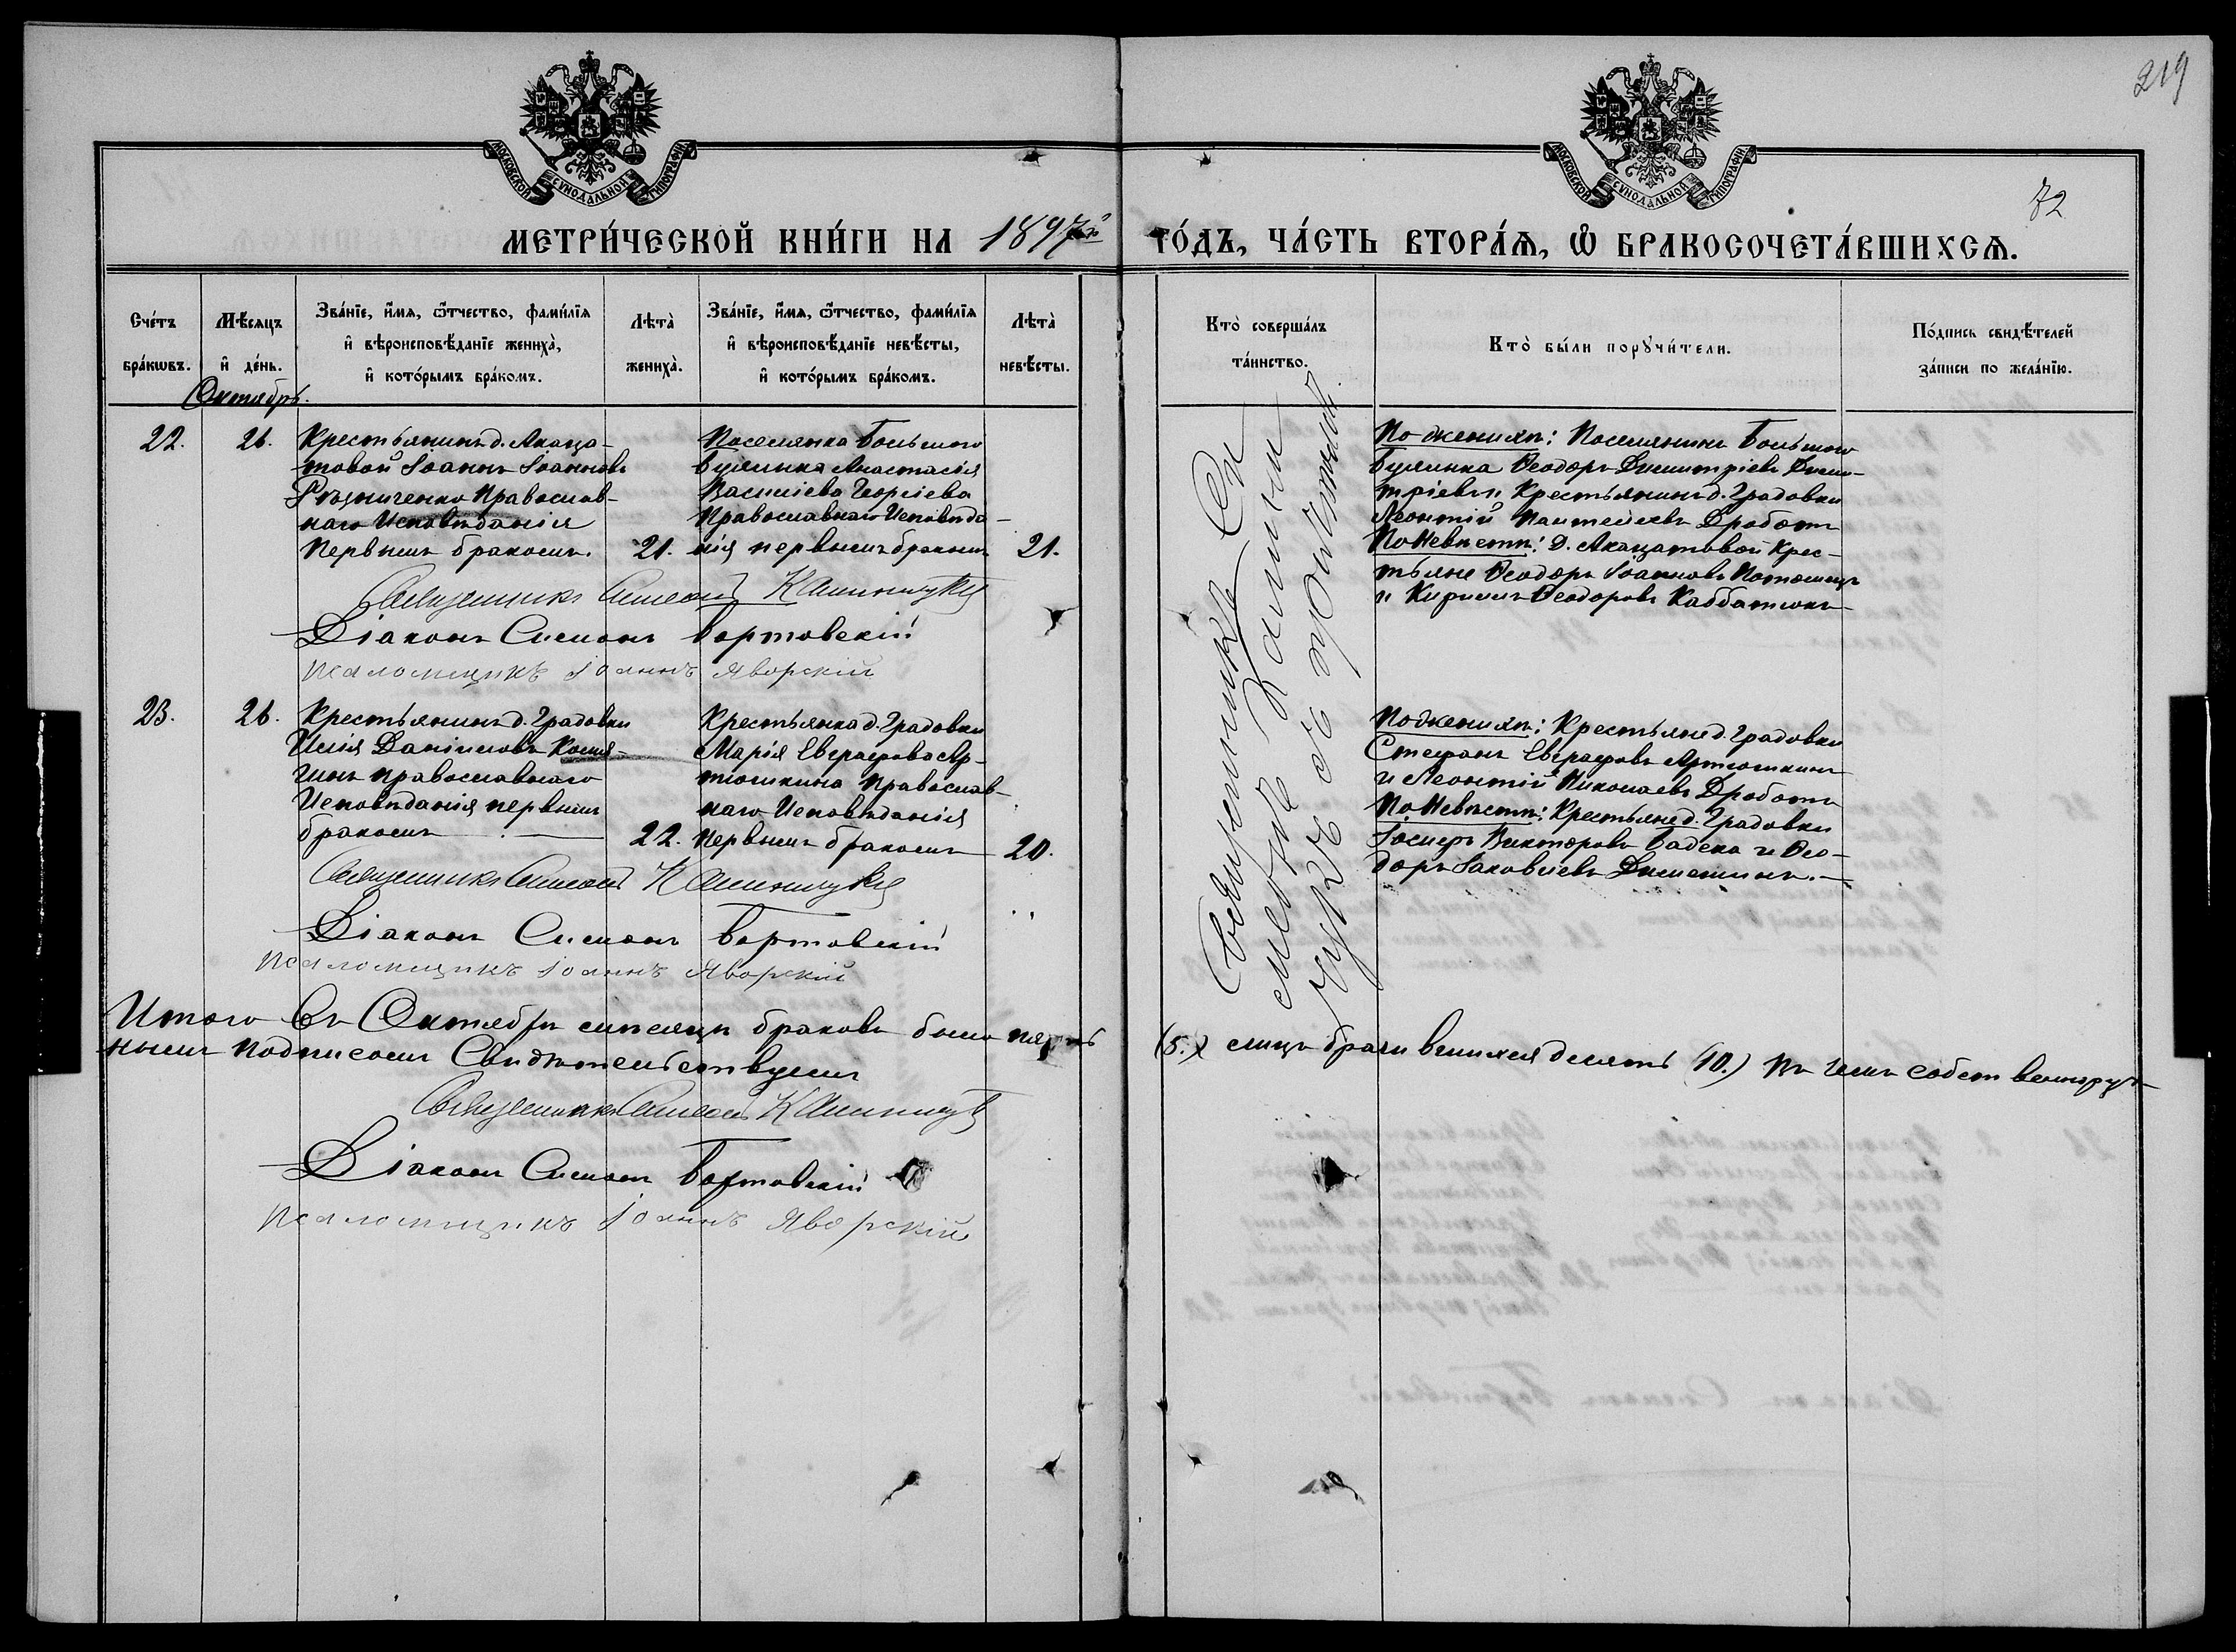 219
72
МОСКОВСКОЙ СУНОДАЛЬНОЙ ТИПОГРАФІИ
МОСКОВСКОЙ СУНОДАЛЬНОЙ ТИПОГРАФІИ
МЕТРИ́ЧЕСКОЙ КНИ́ГИ НА 1897й ГО́ДЪ, ЧА́СТЬ ВТОРА́Ѧ, Ѡ БРАКОСОЧЕТА́ВШИХСѦ.
Сче́тъ бра́кѡвъ.
Мѣ́сяцъ и де́нь.
Зва́нїе, и́мѧ, ѻ́тчество, фами́лїѧ
и вѣроисповѣ́данїе жениха̀,
и кото́рымъ бра́комъ.
Лѣта̀ жениха̀.
Зва́нїе, и́мѧ, ѻ́тчество, фами́лїѧ
и вѣроисповѣ́данїе невѣ́сты,
и кото́рымъ бра́комъ.
Лѣта̀ невѣ́сты.
Кто̀ соверша́лъ
та́инство.
Кто̀ бы́ли порꙋчи́тели.
По́дпись свидѣ́телей
за́писи по жела́нїю.
Октябрь.
22.
26.
Крестьянинъ д. Акаца-
товой Іоаннъ Іоанновъ
Рѣзниченко Православ-
наго Исповѣданія
Первымъ бракомъ.
21.
Поселянка Большого
Буялыка Анастасія
Василіева Георгіева
Православнаго Исповѣда-
нія первымъ бракомъ
21.
По женихѣ: Поселянинъ Большого
Буялыка Ѳеодоръ Димитріевъ Дими-
тріевъ и Крестьянинъ д. Градовки
Леонтій Пантелеевъ Дроботъ
По Невѣстѣ: д. Акацатовой Крес-
тьяне Ѳеодоръ Іоанновъ
и Кириллъ Ѳеодоровъ
Священникъ Симеонъ
Діаконъ Симеонъ Бортовскій
псаломщикъ Іоаннъ Яворскій
23.
26.
Крестьянинъ д. Градовки
Илія Даніиловъ
Православнаго
Исповѣданія первымъ
бракомъ
22.
Крестьянка д. Градовки
Марія Евграфова Ар-
тюшкина Православ-
наго Исповѣданія
Первымъ бракомъ
20.
По женихѣ: Крестьяне д. Градовки
Стефанъ Евграфовъ Артюшкинъ
и Леонтій Николаевъ Дроботъ
По Невѣстѣ: Крестьяне д. Градовки
Іосифъ Викторовъ Бадека и Ѳео-
доръ Іаковлевъ
Священникъ Симеонъ
Діаконъ Симеонъ Бортовскій
псаломщикъ Іоаннъ Яворскій
Священникъ Си
меонъ
съ причтомъ
Итого въ Октябрѣ мѣсяцѣ браковъ было пять (5.) лицъ брачившихся десять (10.) въ чемъ собственноруч-
нымъ Подписомъ Свидѣтельствуемъ
Священникъ Симеонъ
Діаконъ Симеонъ Бортовскій
псаломщикъ Іоаннъ Яворскій